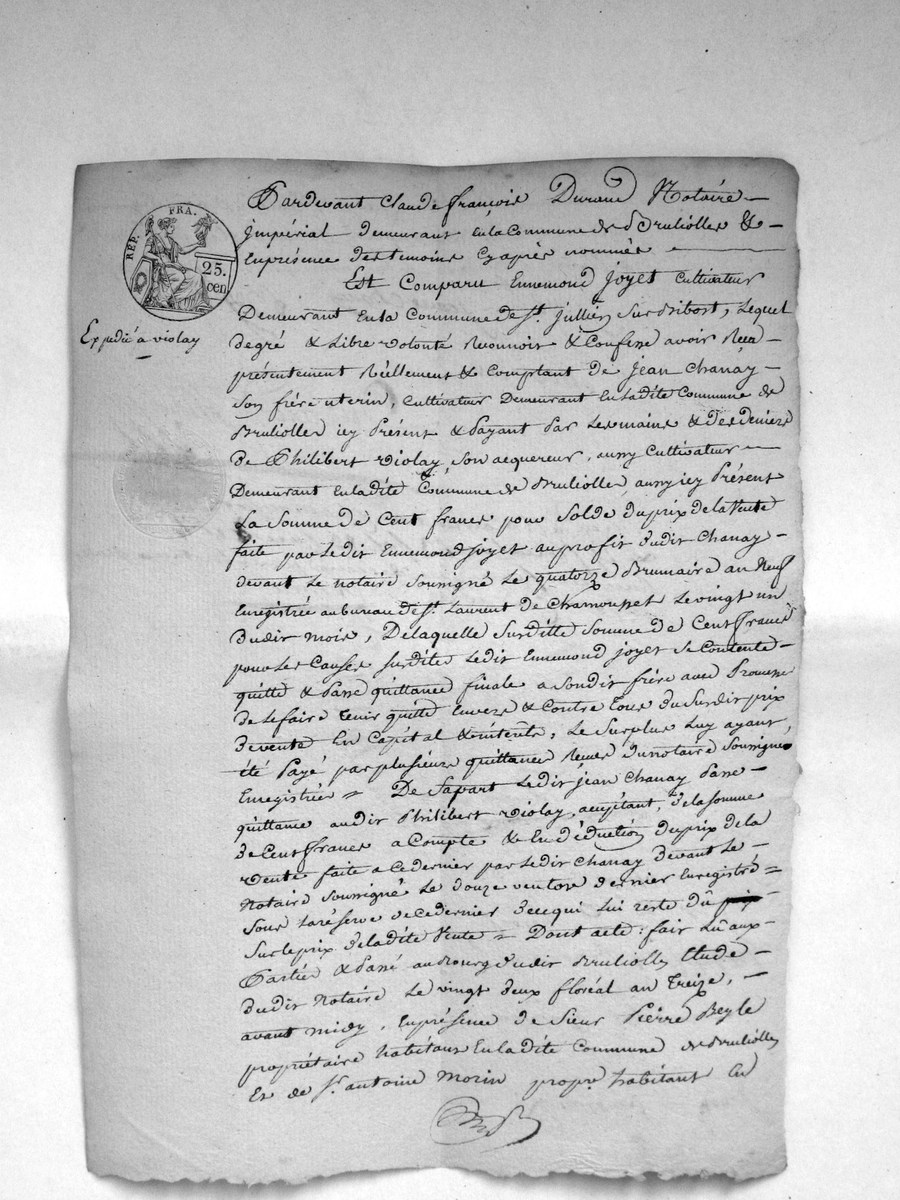 RÉP. FRA.
25.
cen
Expedié a violay
Pardevant Claude françois Durand Notaire
Impérial demeurant en la Commune de Brulioles &
En présence des temoins cy après nommés
Est Comparu Ennemond Joyet Cultivateur
Demeurant en la Commune de St. Jullien sur bibost, Lequel
de gré & Libre volonté Reconnoit & Confesse avoir Recu
présentement Réellement & Comptant de jean Chanay
Son frére uterin, Cultivateur Demeurant en la dite Commune de
Brulioller icy présent & Payant Par les mains & des deniers
de Philibert violay, son acquereur, aussy Cultivateur
Demeurant en la dite Commune de Brulioller, aussy icy Présent
La Somme de Cent francs pour Solde du prix de la vente
faite par le dit Ennemond Joyet au profit dudit Chanay
devant Le notaire soussigné Le quatorze Brumaire an Neuf
Enregistrée au bureau de St. Laurent de Chamousset Le vingt un
dudit mois, De laquelle Susditte Somme de Cent francs
pour les Causes susdites le dit Ennemond joyet se Contente
quitte & Passe quittance finale a son dit frére avec Promesse
de le faire tenir quitte Envers & Contre tous du susdit prix
de vente En Capital & intérêts, Le Surplus Luy ayant
été Payé par plusieurs quittances Reçues du notaire Soussigné
Enregistrées = De sa part le dit jean Chanay Passe
quittance audit Philibert violay, acceptant, de la somme
de Cent francs a Compte & En déduction du prix de la
vente faite a ce dernier par le dit Chanay devant Le
Notaire soussigné Le douze ventose dernier Enregistré =
Sous la réserve de ce dernier de ce qui lui reste dû
Sur le prix de la dite vente = Dont acte : fait Lû aux
Parties & Passé au Bourg dudit Brulioller Etude
dudit Notaire Le vingt deux floréal an treize,
avant midy, En présence de Sieur Pierre Beyle
propriétaire habitant en la dite Commune de Brulioller
Et de Sr. antoine morin propre. habitant En